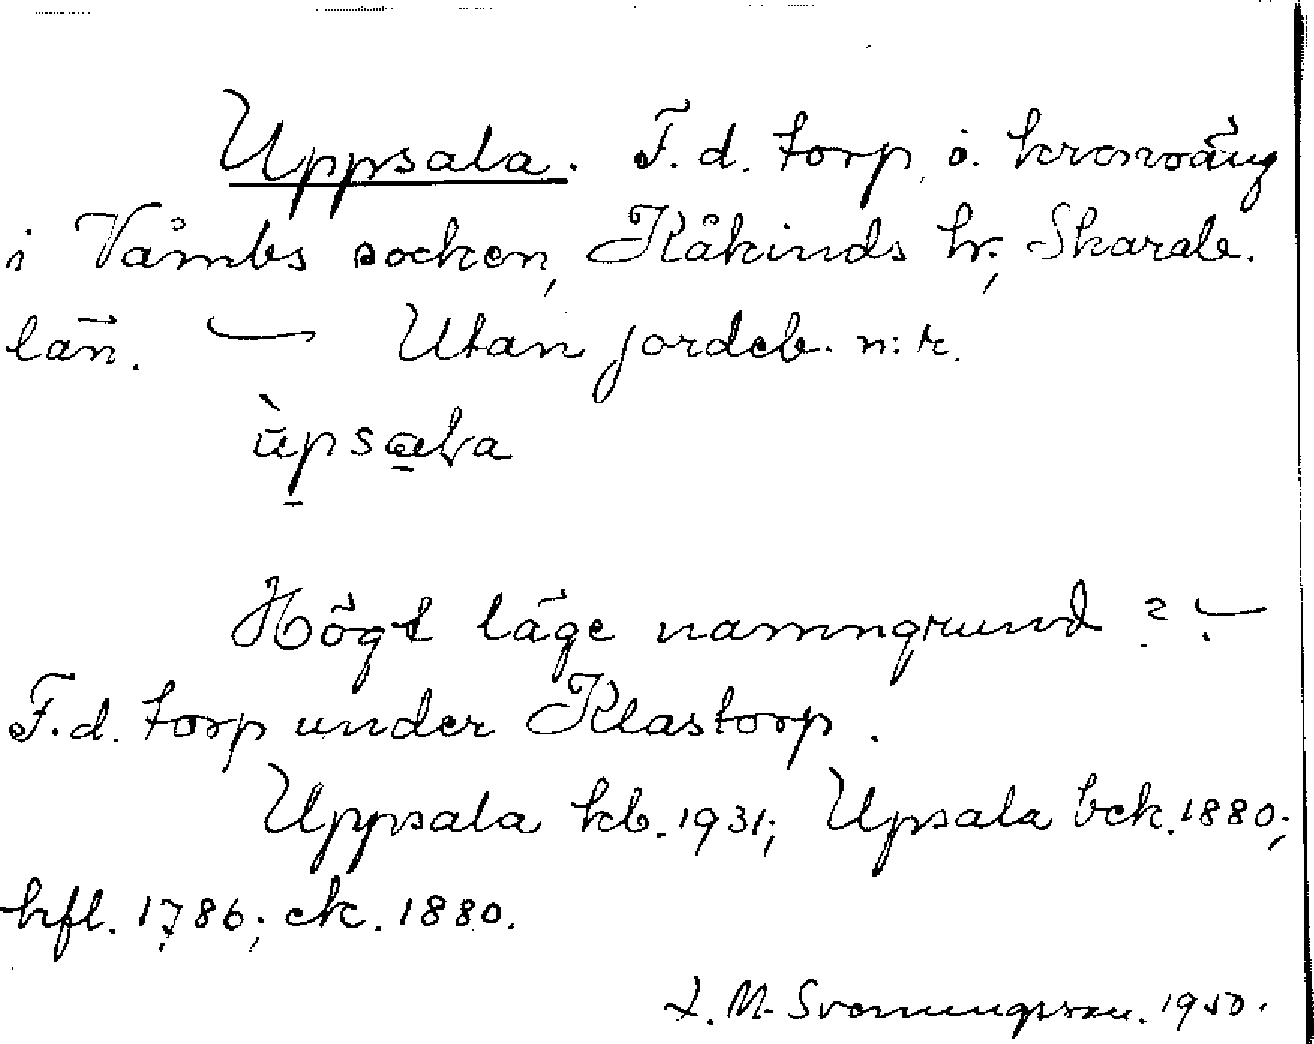 Uppsala. F.d. torp, o. kronoäng
i Våmbs socken, Kåkinds hr, Skarab.
län. — Utan jordeb. n:r.
Högt läge namngrund? —
F.d. torp under Klastorp.
Uppsala kb. 1931; Upsala bek. 1880;
hfl. 1786; ek. 1880.
L. M. Svenungsson. 1950.